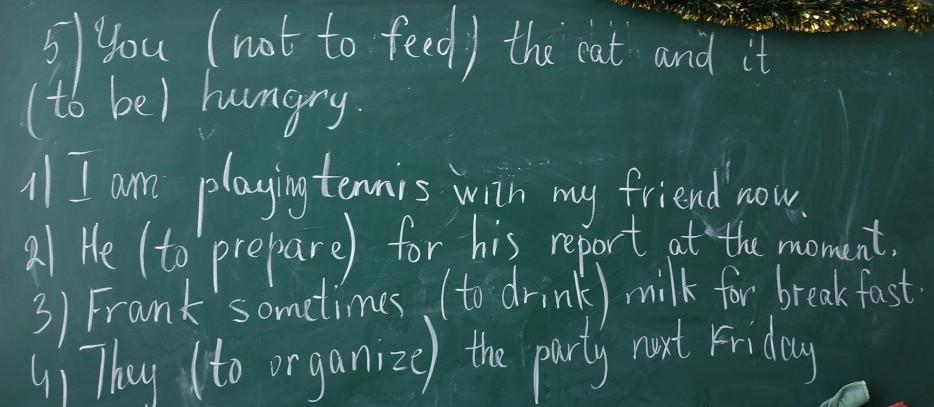 5) You (not to feed) the cat and it
(to be) hungry.
1) I am playing tennis with my friend now.
2) He (to prepare) for his report at the moment.
3) Frank sometimes (to drink) milk for breakfast.
4) They (to organize) the party next Friday